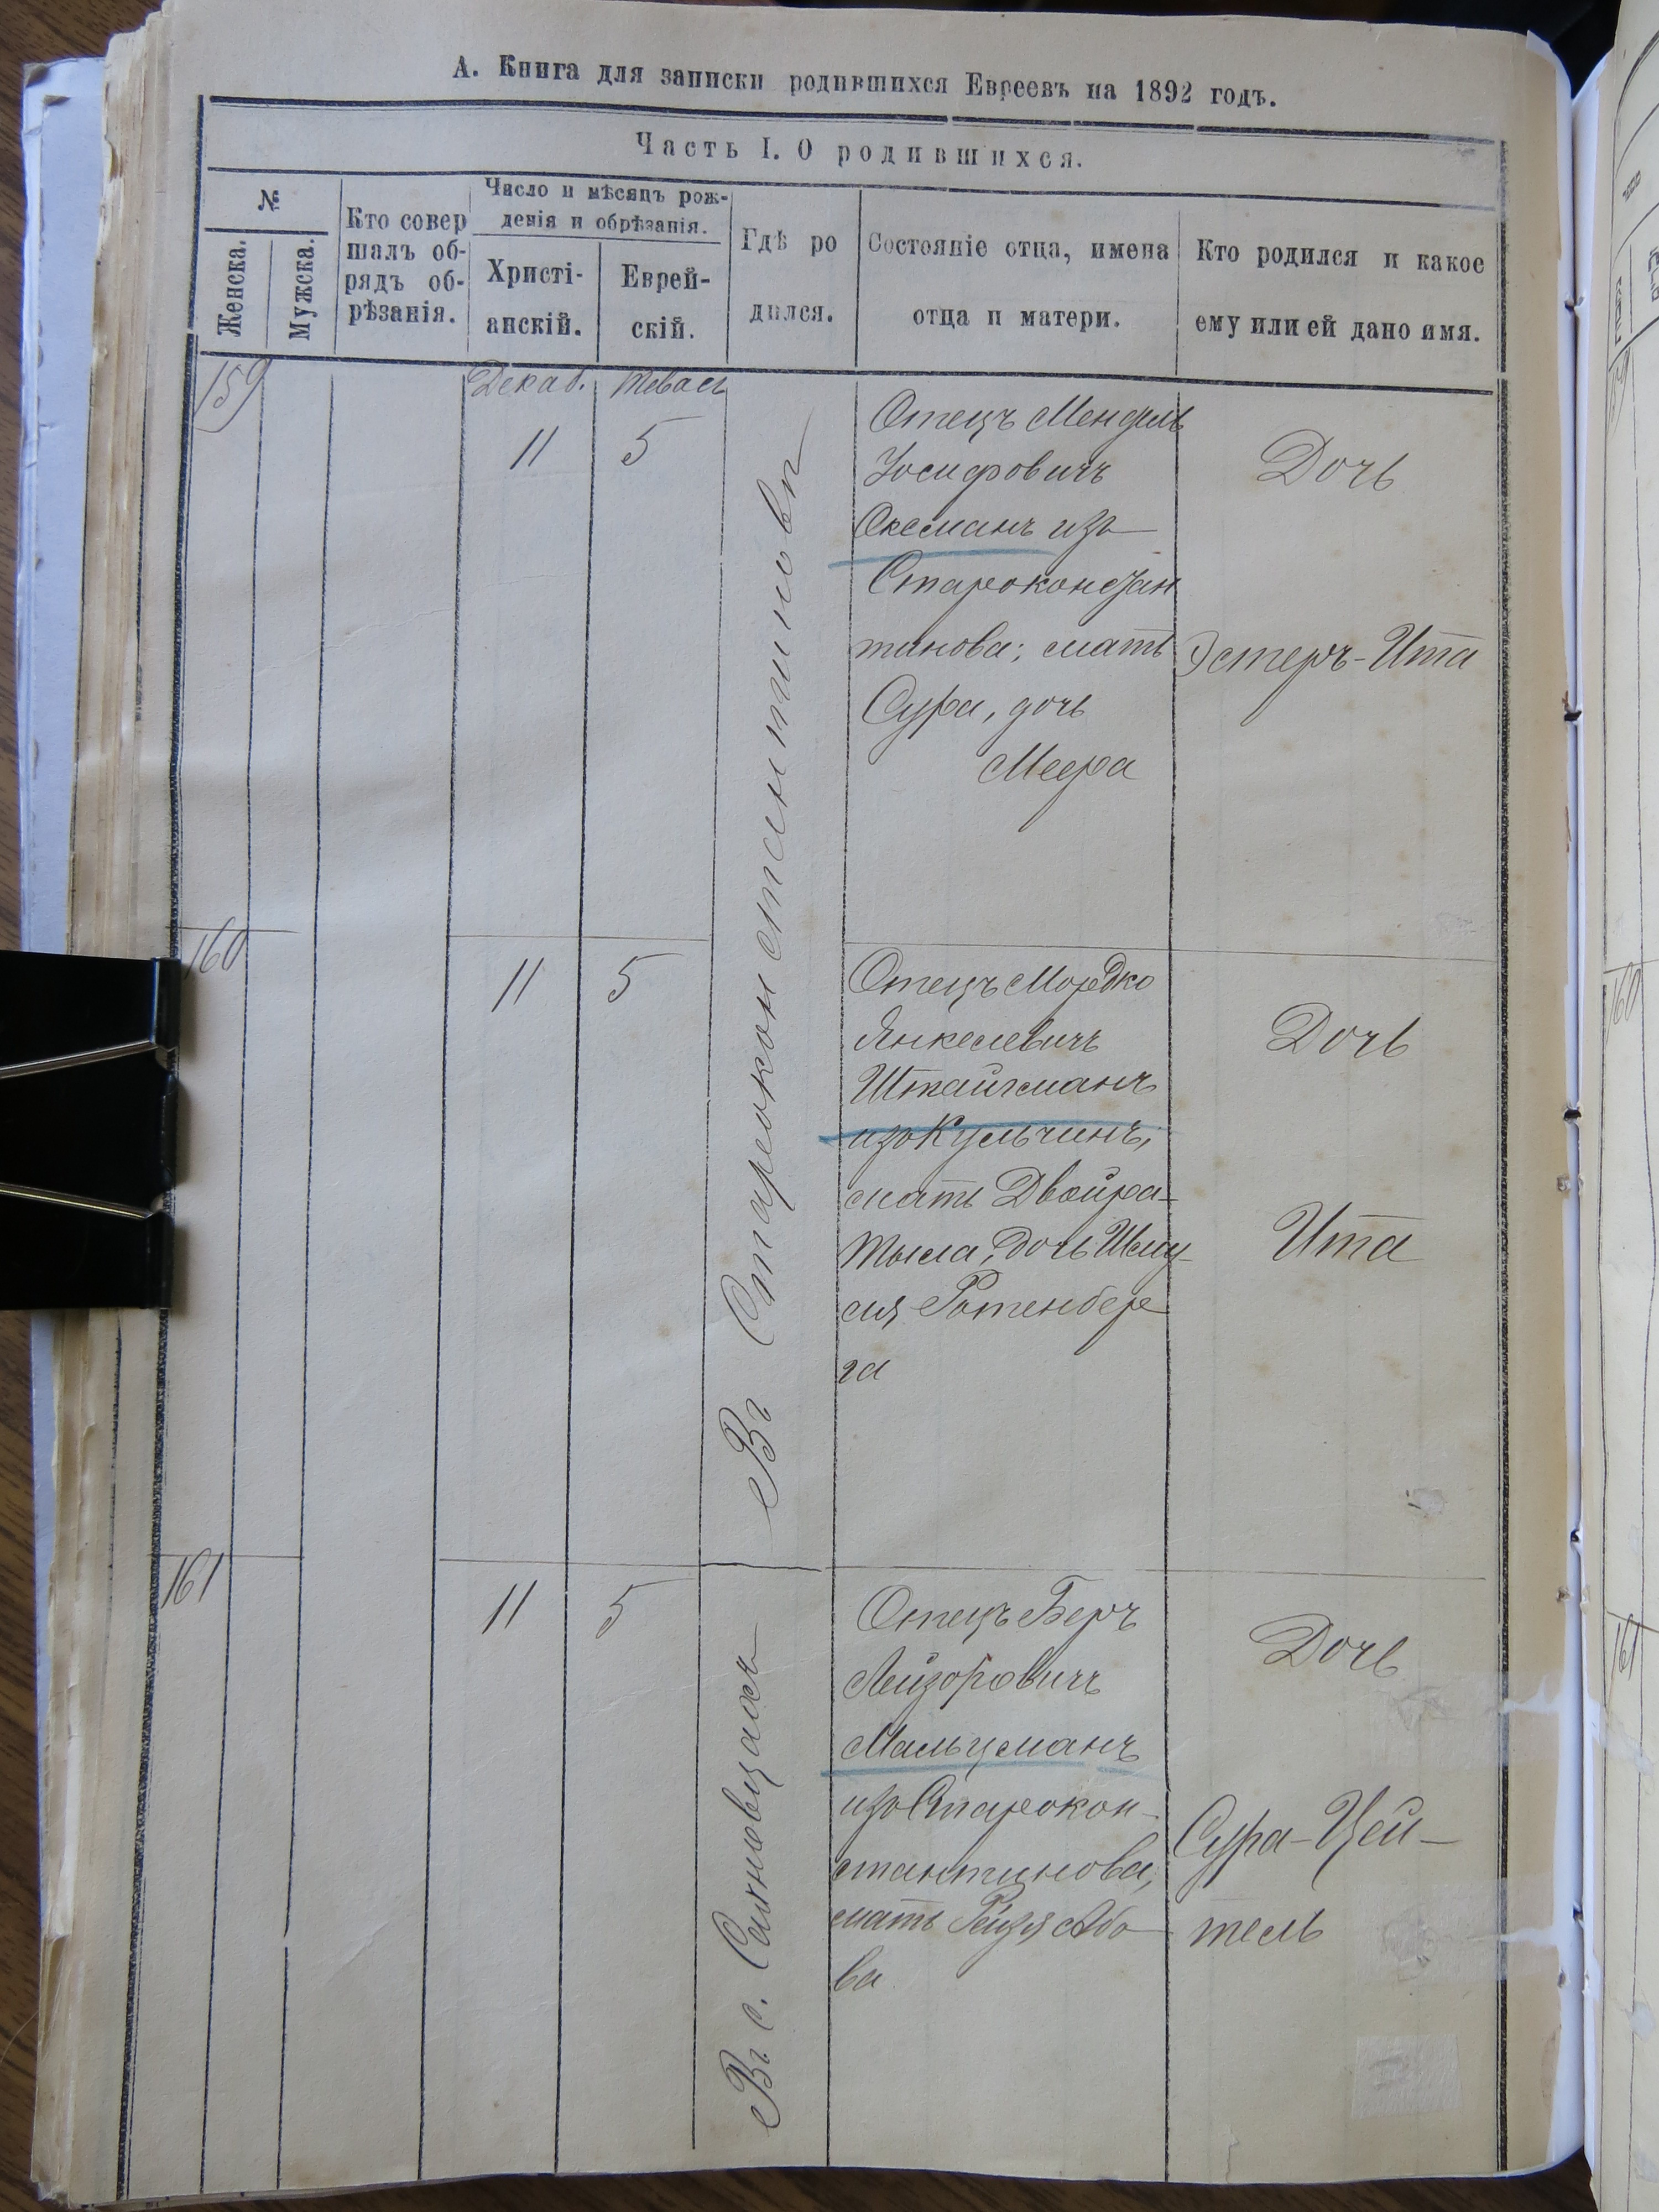 А. Книга для записки родившихся Евреевъ на 1892 годъ.
Часть I. О родившихся.
№
Женска.
Мужска.
Кто совер
шалъ об-
рядъ об-
рѣзанія.
Число и мѣсяцъ рож-
денія и обрѣзанія.
Христі-
анскій.
Еврей-
скій.
Гдѣ ро
дился.
Состояніе отца, имена
отца и матери.
Кто родился и какое
ему или ей дано имя.
159
Декаб.
Тевась
11
5
Въ Староконстантиновѣ
Отецъ Мендель
Іосифовичъ
Оксманъ изъ
Староконстан
тинова; мать
Сура, дочь
Меера
Дочь
Эстеръ-Ита
160
11
5
Отецъ Мордко
Янкелевичъ
Штайгманъ
изъ Кульчинъ,
мать Двойра-
Тысла, дочь Шму-
ля Ротенбер
га
Дочь
Ита
161
11
5
Въ с.
Отецъ Беръ
Лейзоровичъ
Мальцманъ
изъ Старокон-
стантинова,
мать Рейзя Або
ва
Дочь
Сура-Цей-
тель
160
161